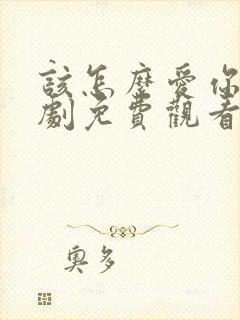 該怎麼愛你
劇免費觀看
奧多